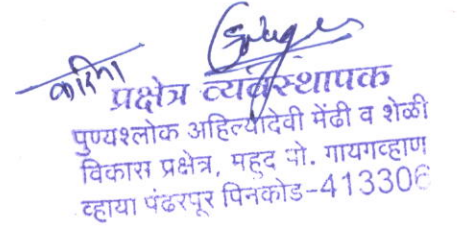 करिता
प्रक्षेत्र व्यवस्थापक
पुण्यश्लोक अहिल्यादेवी मेंढी व शेळी
विकास प्रक्षेत्र, महुद पो. गायगव्हाण
व्हाया पंढरपूर पिनकोड-413306